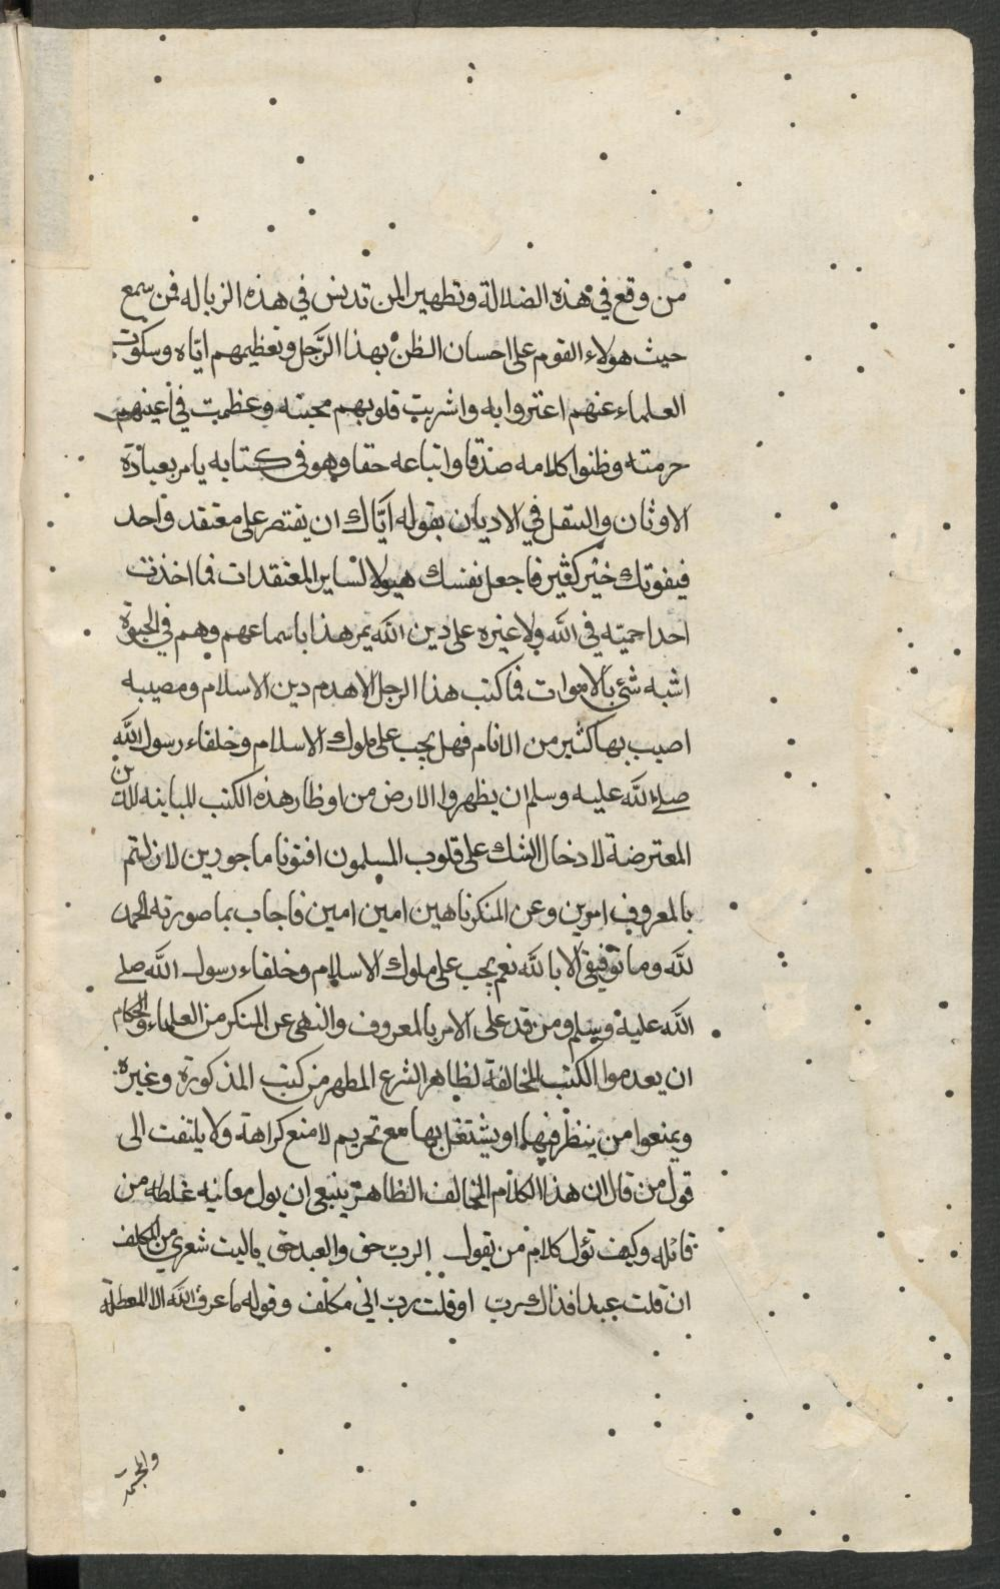 من وقع في هذه الضلالة وتطهير المن تدنس في هذه الزباله فمن سمع
حيث هولاء القوم على احسان الظن بهذا الرَّجل وتعظيمهم ايّاه وسكوت
العلماء عنهم اغتروا به واشربت قلوبهم محبته وعظمت في اعينهم
حرمته وظنوا كلامه صدقا واتباعه حقا وهو في كتابه يامر بعبادة
الاوثان والتنقل في الاديان بقوله ايّاك ان يقتصر على معتقد واحد
فيفوتك خير كثير فاجعل نفسك هيولا لساير المعتقدات فما اخذت
احدا حميته في الله ولا غيره على دين الله يمر هذا باسماعهم وهم في الحيوة
اشبه شئ بالاموات فما كتب هذا الرجل الا هدم دين الاسلام ومصيبه
اصيب بها كثير من الانام فهل يجب على ملوك الاسلام وخلفاء رسول الله
صلى الله عليه وسلم ان يظهروا الارض من اوظار هذه الكتب المباينه للدين
المعترضة لادخال الشك على قلوب المسلمون افتونا ماجورين لا زلتم
بالمعروف امرين وعن المنكر ناهين امين امين فاجاب بما صورته الحمد
لله وما توفيقي الا بالله نعم يجب على ملوك الاسلام وخلفاء رسول الله صلى
الله عليه وسلم ومن قدر على الامر بالمعروف والنهى عن المنكر من العلماء والحكام
ان يعدموا الكتب المخالفة لظاهر الشرع المطهر من كتب المذكورة وغيره
ويمنعوا من ينظر فيها او يشتغل بها مع تحريم لا منع كراهة ولا يلتفت الى
قول من قال ان هذا الكلام المخالف الظاهر ينبغى ان يول معانيه غلطه من
قائله وكيف تؤل كلام من يقول الربّ حق والعبد حق ياليت شعري من المكلف
ان قلت عبد فذاك رب او قلت ربّ اني مكلف وقوله ما عرف الله الا المعطلة